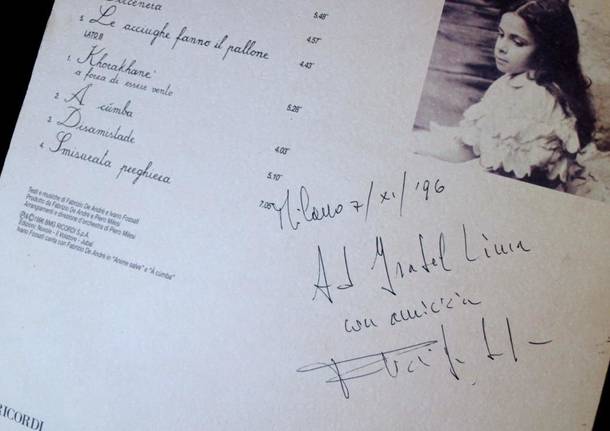 Dolcenera 5.48"
5. Le acciughe fanno il pallone 4.57"
LATO B
1. Khorakhané 4.43"
a forza di essere vento
2. A cúmba 5.28"
3. Disamistade 4.03"
4. Smisurata preghiera 5.10"
7.05"
Testi e musiche di Fabrizio De André e Ivano Fossati
Prodotto da Fabrizio De André e Piero Milesi
Arrangiamenti e direzione d'orchestra di Piero Milesi
℗ & © 1996 BMG RICORDI S.p.A.
Edizioni: Nuvole - Il Volatore - Jubal
Ivano Fossati canta con Fabrizio De André in "Anime salve" e "Â cúmba"
Milano 7/XI/'96
Ad
con amicizia
RICORDI